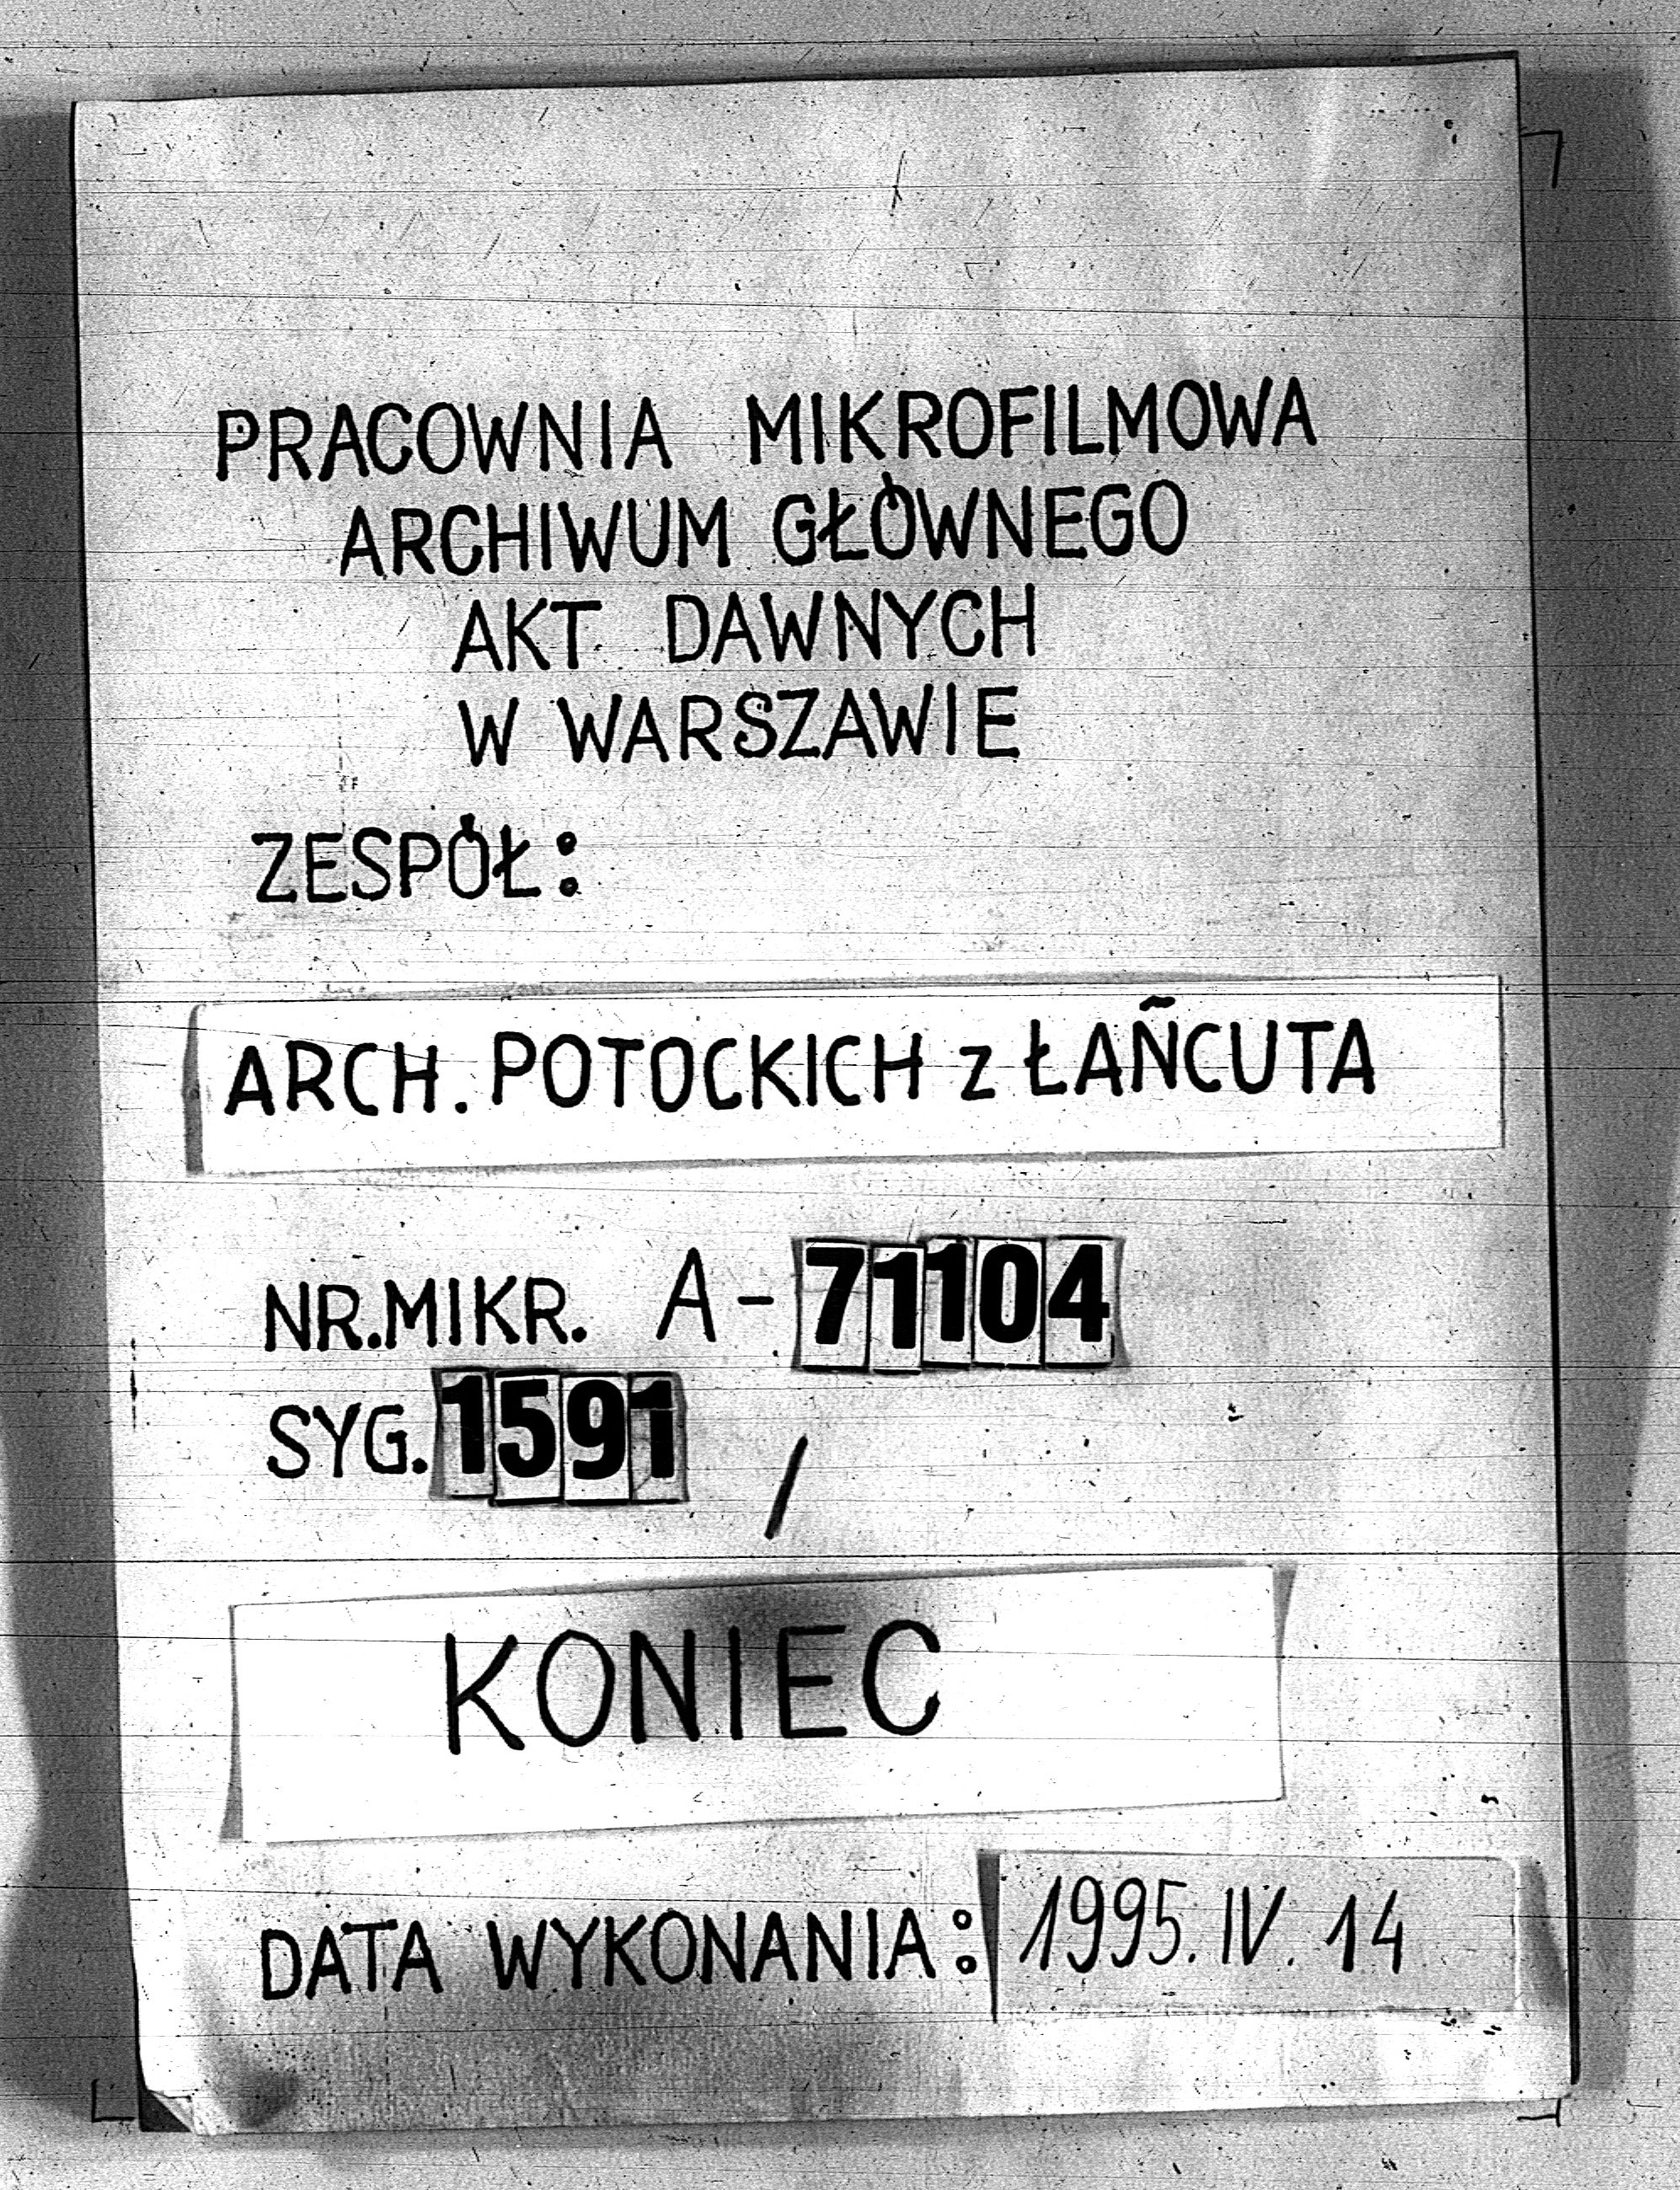 PRACOWNIA MIKROFILMOWA
ARCHIWUM GŁÓWNEGO
AKT DAWNYCH
W WARSZAWIE
ZESPÓŁ:
ARCH. POTOCKICH z ŁAŃCUTA
NR.MIKR. A-71104
SYG. 1591 /
KONIEC
DATA WYKONANIA: 1995.IV.14